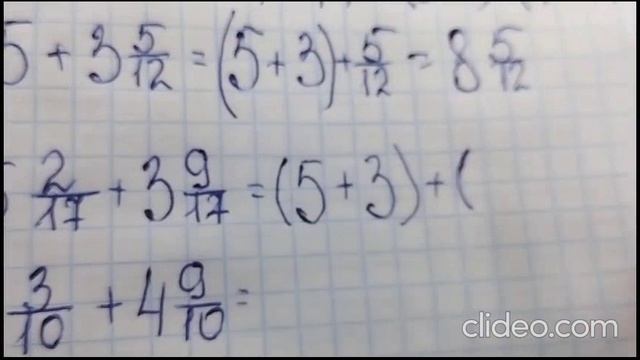 5 + 3 5/12 = (5 + 3) + 5/12 = 8 5/12
5 2/17 + 3 9/17 = (5 + 3) + (
3/10 + 4 9/10 =
clideo.com